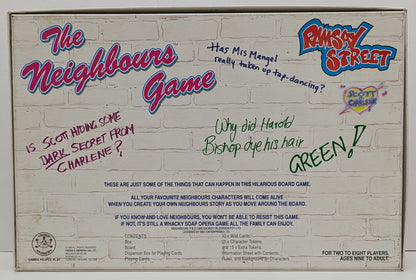 The
Neighbours
Game
Has Mrs Mangel
really taken up tap-dancing?
RAMSAY
STREET
SCOTT
CHARLENE
IS SCOTT HIDING SOME
DARK SECRET FROM
CHARLENE?
Why did Harold
Bishop dye his hair
GREEN!
THESE ARE JUST SOME OF THE THINGS THAT CAN HAPPEN IN THIS HILARIOUS BOARD GAME.
ALL YOUR FAVOURITE NEIGHBOURS CHARACTERS WILL COME ALIVE
WHEN YOU CREATE YOUR OWN NEIGHBOURS STORY AS YOU MOVE AROUND THE BOARD.
IF YOU KNOW AND LOVE NEIGHBOURS, YOU WON'T BE ABLE TO RESIST THIS GAME.
IF NOT, IT'S STILL A WHACKY SOAP OPERA GAME ALL THE FAMILY CAN ENJOY.
CONTENTS
Box
Board
Dispenson Box for Playing Cards
Playing Cards
10 x Wild Cards
Character Tokens
15 x Extra Tokens
Information Sheet with Contents,
Rules, and Background to Characters
GAMES PEOPLE PLAY
FOR TWO TO EIGHT PLAYERS.
AGES NINE TO ADULT.